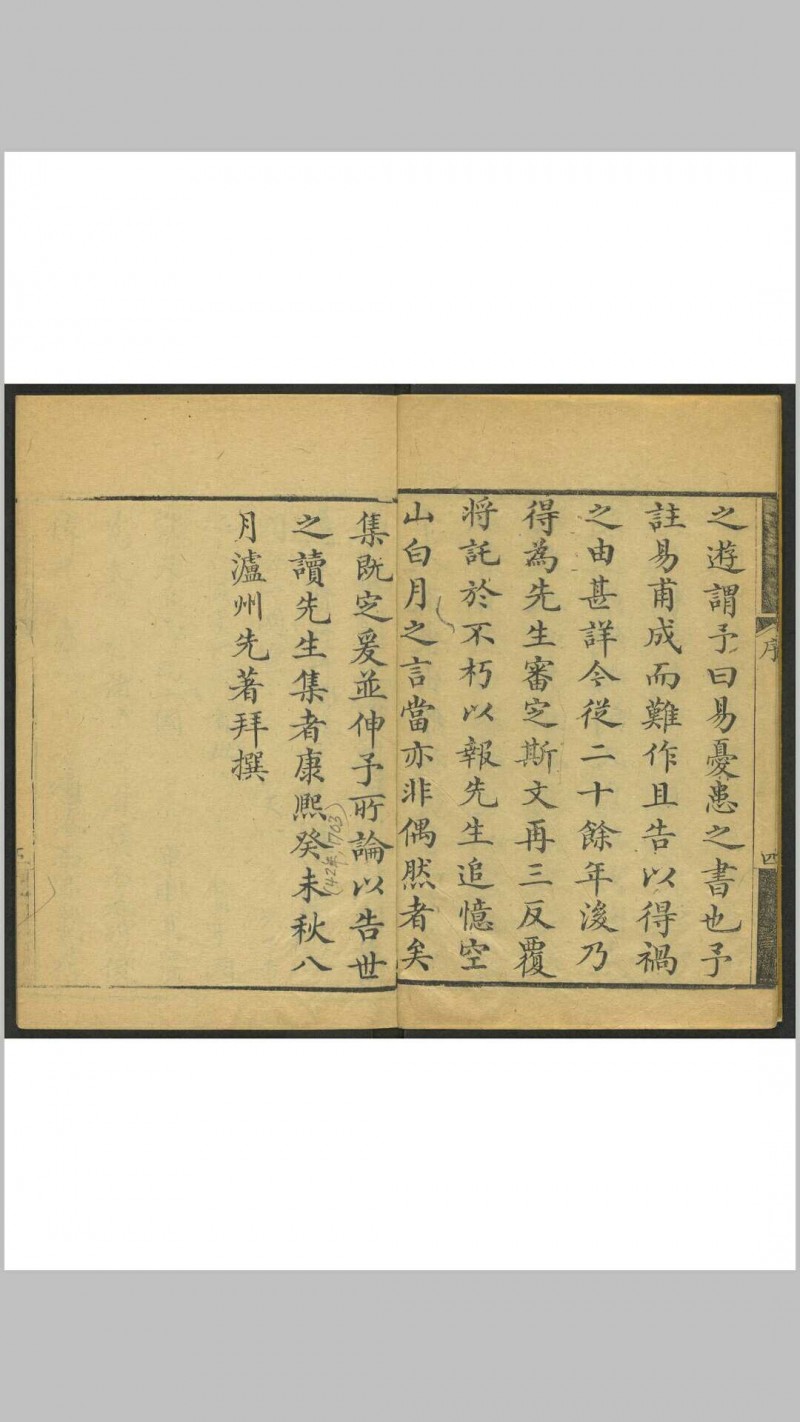 序
四
之遊謂予曰易憂患之書也予
註易甫成而難作且告以得禍
之由甚詳今從二十餘年後乃
得為先生審定斯文再三反覆
將託於不朽以報先生追憶空
山白月之言當亦非偶然者矣
集既定爰並伸予所論以告世
之讀先生集者康熙癸未秋八
(42年,1703)
月瀘州先著拜撰